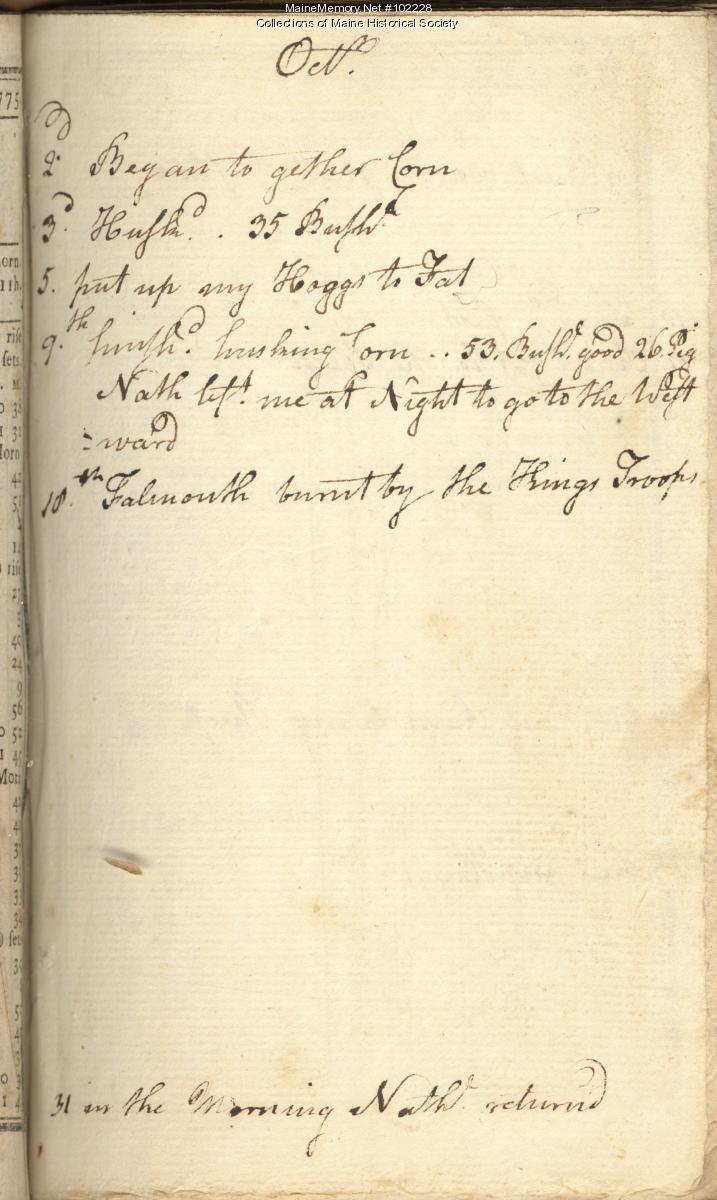 MaineMemory.Net #102228
Collections of Maine Historical Society
Octr.
2d Began to gether Corn
3d. Huskd. . 35 Bushls
5. put up my Hoggs to Fat
9.th finishd. husking Corn .. 53. Bushls. good 26. Pig
Nath left me at Night to go to the West
=ward
18.th Falmouth burnt by the Kings Troops
31 in the Morning Nathl. returnd
775
orn
rise
sets
M
Morn
rise
Morn
sets